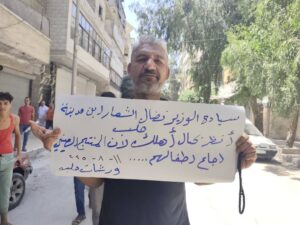 سيادة الوزير نضال الشعار ابن مدينة
حلب
أنظر حال أهلك لأن المنتج الصيني
أجاع أطفالهم .....
١١ - ٨ - ٢٠٢٥
ورشات حلب